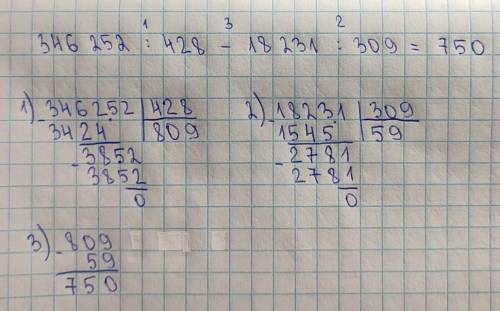 1 3 2
346 252 : 428 - 18 231 : 309 = 750
1) 346252 | 428 2) 18231 | 309
- 3424 | 809 - 1545 | 59
- 3852 - 2781
3852 2781
0 0
3) - 809
59
750